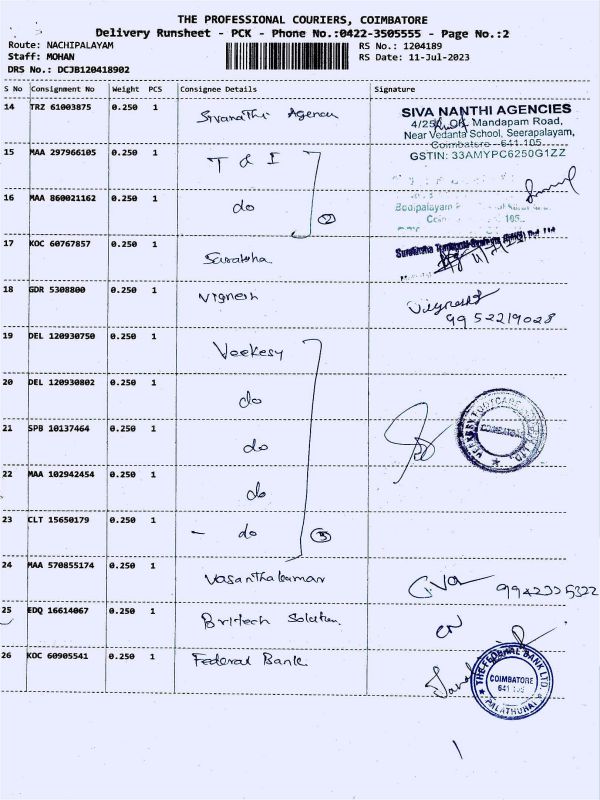 THE PROFESSIONAL COURIERS, COIMBATORE
Delivery Runsheet - PCK - Phone No.:0422-3505555 - Page No.:2
Route: NACHIPALAYAM
RS No.: 1204189
Staff: MOHAN
RS Date: 11-Jul-2023
DRS No.: DCJB120418902
S No Consignment No Weight PCS Consignee Details Signature
14 TRZ 61003875 0.250 1 Sivanathi Agency
SIVA NANTHI AGENCIES
Mandapam Road,
Near Vedanta School, Seerapalayam,
Coimbatore - 641 105
GSTIN: 33AMYPC6250G1ZZ
15 MAA 297966105 0.250 1 T & I
16 MAA 860021162 0.250 1 do 2
Bodipalayam
105
17 KOC 60767857 0.250 1 Suraksha
18 GDR 5308800 0.250 1 Vignesh
Vignesh
9952219028
19 DEL 120930750 0.250 1 Veekesy
20 DEL 120930802 0.250 1 do
21 SPB 10137464 0.250 1 do
COIMBATORE
22 MAA 102942454 0.250 1 do
23 CLT 15650179 0.250 1 - do 5
24 MAA 570855174 0.250 1 Vasanthakumar
25 EDQ 16614067 0.250 1 Britech Solution
26 KOC 60905541 0.250 1 Federal Bank
THE FEDERAL BANK LTD.
COIMBATORE
641 105
PALATHURAI